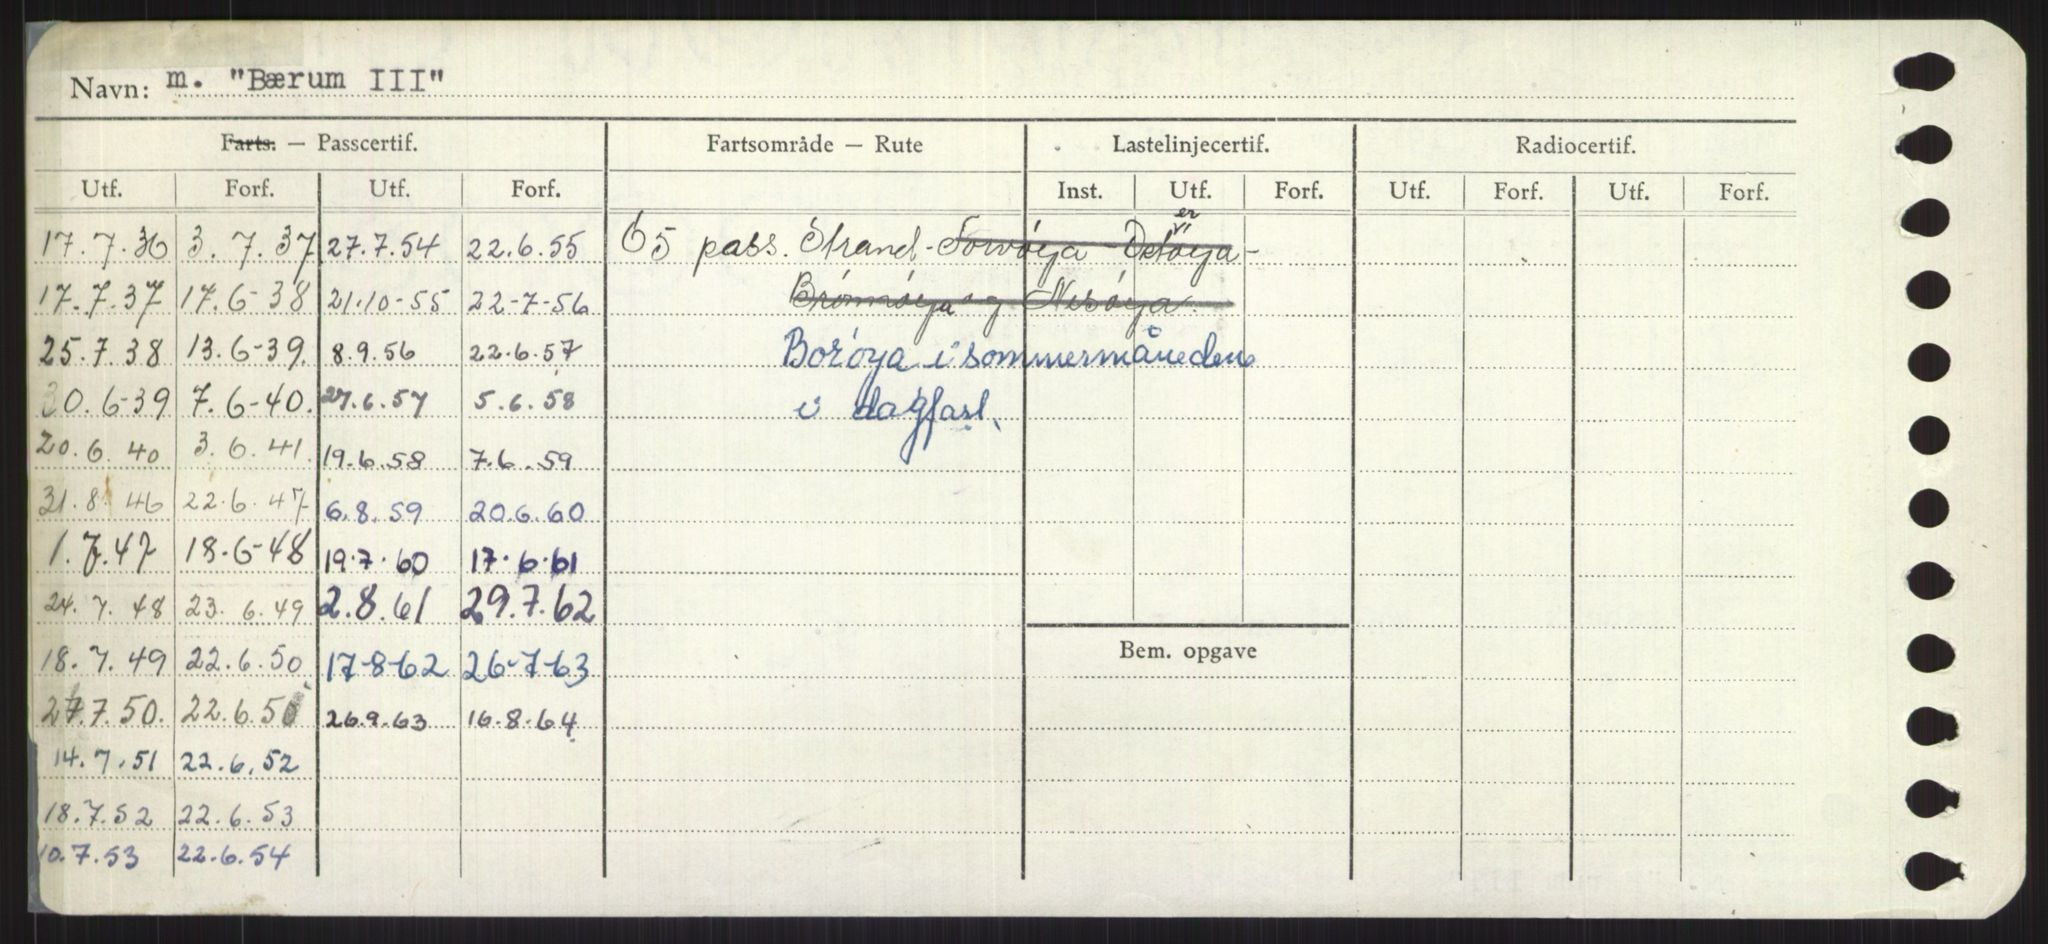 Navn: m. "Bærum III"
Farts. — Passcertif. Fartsområde — Rute Lastelinjecertif. Radiocertif.
Utf. Forf. Utf. Forf. Inst. Utf. Forf. Utf. Forf. Utf. Forf.
17.7.36 3.7.37 27.7.54 22.6.55 65 pass. Strand-
17.7.37 17.6-38 21.10-55 22-7-56 og Nesøya.
25.7.38 13.6-39. 8.9.56 22.6.57 Borøya i sommermånedene
30.6-39 7.6-40. 27.6.57 5.6.58 i dagfart.
20.6.40 3.6.41. 19.6.58 7.6.59
31.8.46 22.6.47 6.8.59 20.6.60
1.7.47 18.6-48 19.7.60 17.6.61
24.7.48 23.6.49 2.8.61 29.7.62
18.7.49 22.6.50 17-8-62 26-7-63 Bem. opgave
27.7.50. 22.6.50 26.9.63 16.8.64
14.7.51 22.6.52
18.7.52 22.6.53
10.7.53 22.6.54